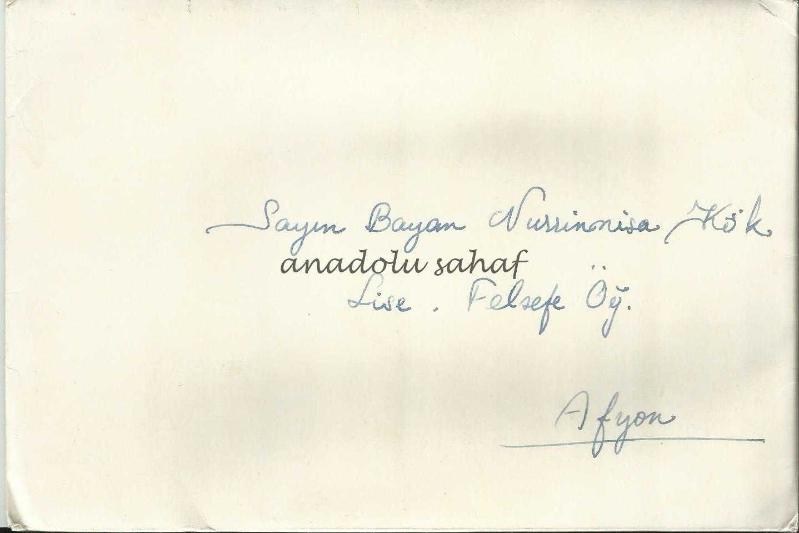 Sayın Bayan Nurrinnisa Kök
anadolu sahaf
Lise . Felsefe Öğ.
Afyon